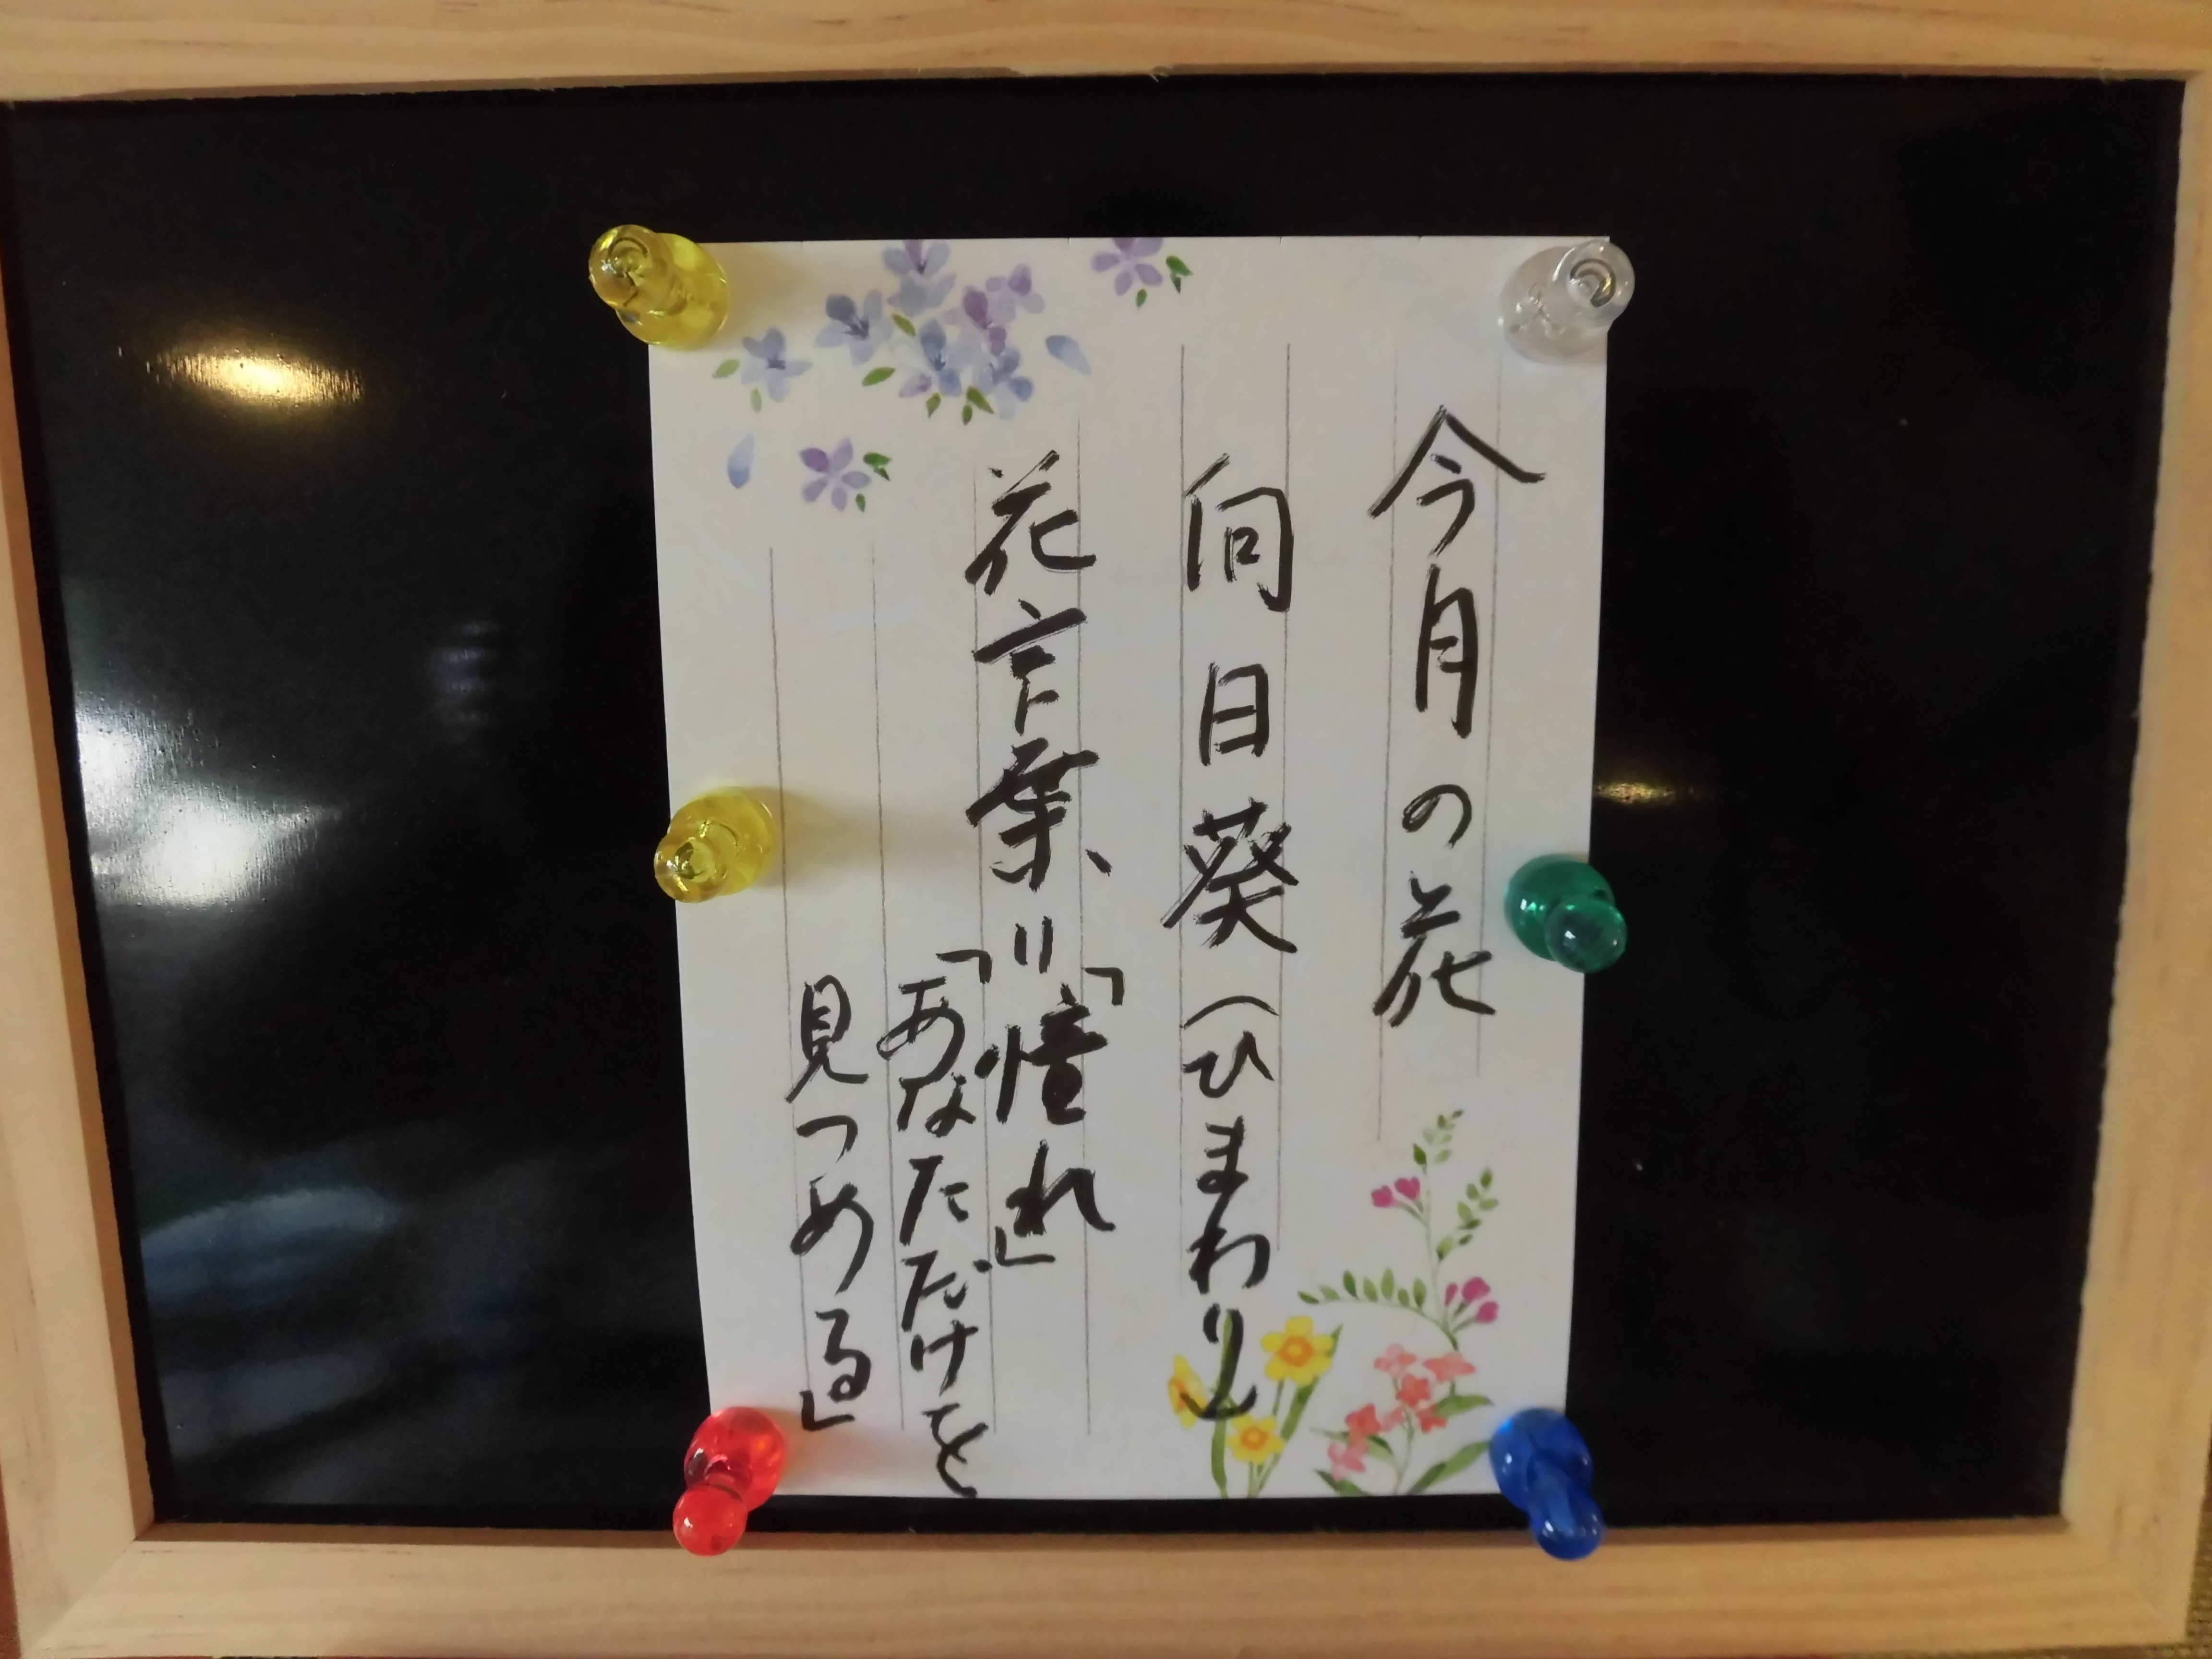 今月の花
向日葵(ひまわり)
花言葉、=「憧れ」
「あなただけを
見つめる」